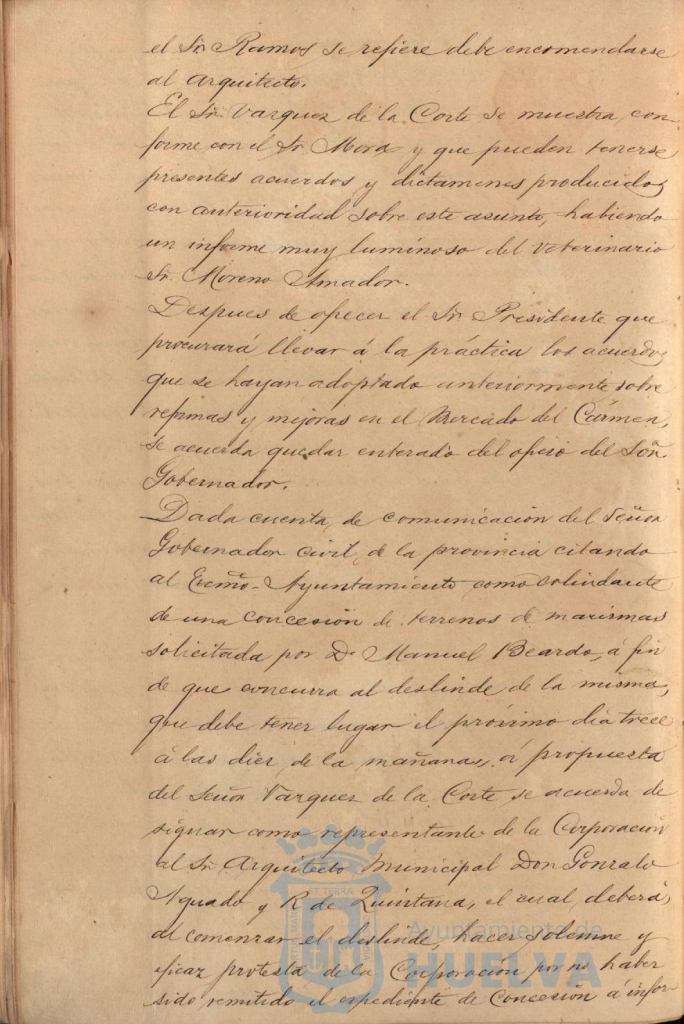 el Sr. Ramos se refiere debe encomendarse
al arquitecto.
El Sr. Vazquez de la Corte se muestra con-
forme con el Sr. Mora y que pueden tenerse
presentes acuerdos y dictamenes producidos
con anterioridad sobre este asunto, habiendo
un informe muy luminoso del veterinario
Sr. Moreno Amador.
Despues de ofrecer el Sr. Presidente que
procurará llevar á la práctica los acuerdos
que se hayan adoptado anteriormente sobre
reformas y mejoras en el Mercado del Cármen,
se acuerda quedar enterado del oficio del Señ.
Gobernador.
Dada cuenta de comunicación del Señor
Gobernador civil de la provincia citando
al Excmo. Ayuntamiento como colindante
de una concesión de terrenos de marismas
solicitada por Dn. Manuel Beardo, á fin
de que concurra al deslinde de la misma,
que debe tener lugar el próximo dia trece
á las diez de la mañana, á propuesta
del Señor Vazquez de la Corte se acuerda de
signar como representante de la Corporación
al Sr. Arquitecto Municipal Don Gonzalo
Aguado y R. de Quintana, el cual deberá,
al comenzar el deslinde, hacer solemne y
eficaz protesta de la Corporación por no haber
sido remitido el expediente de Concesión á infor-
Ayuntamiento de
HUELVA